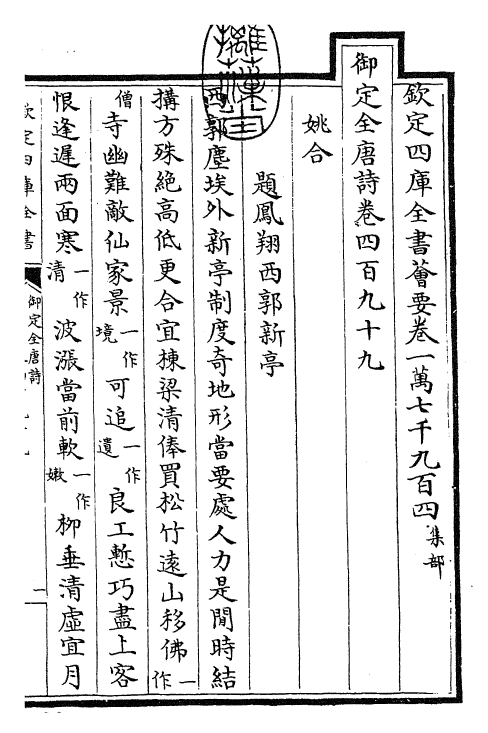 欽定四庫全書薈要卷一萬七千九百四 集部
御定全唐詩卷四百九十九
姚合
題鳳翔西郭新亭
西郭塵埃外新亭制度奇地形當要處人力是閒時結
搆方殊絶高低更合宜棟梁清俸買松竹逺山移佛一作
僧寺幽難敵仙家景一作境可追一作遺良工慙巧盡上客
恨逢遲兩面寒一作清波漲當前軟一作嫩柳垂清虛宜月
欽定四庫全書
御定全唐詩